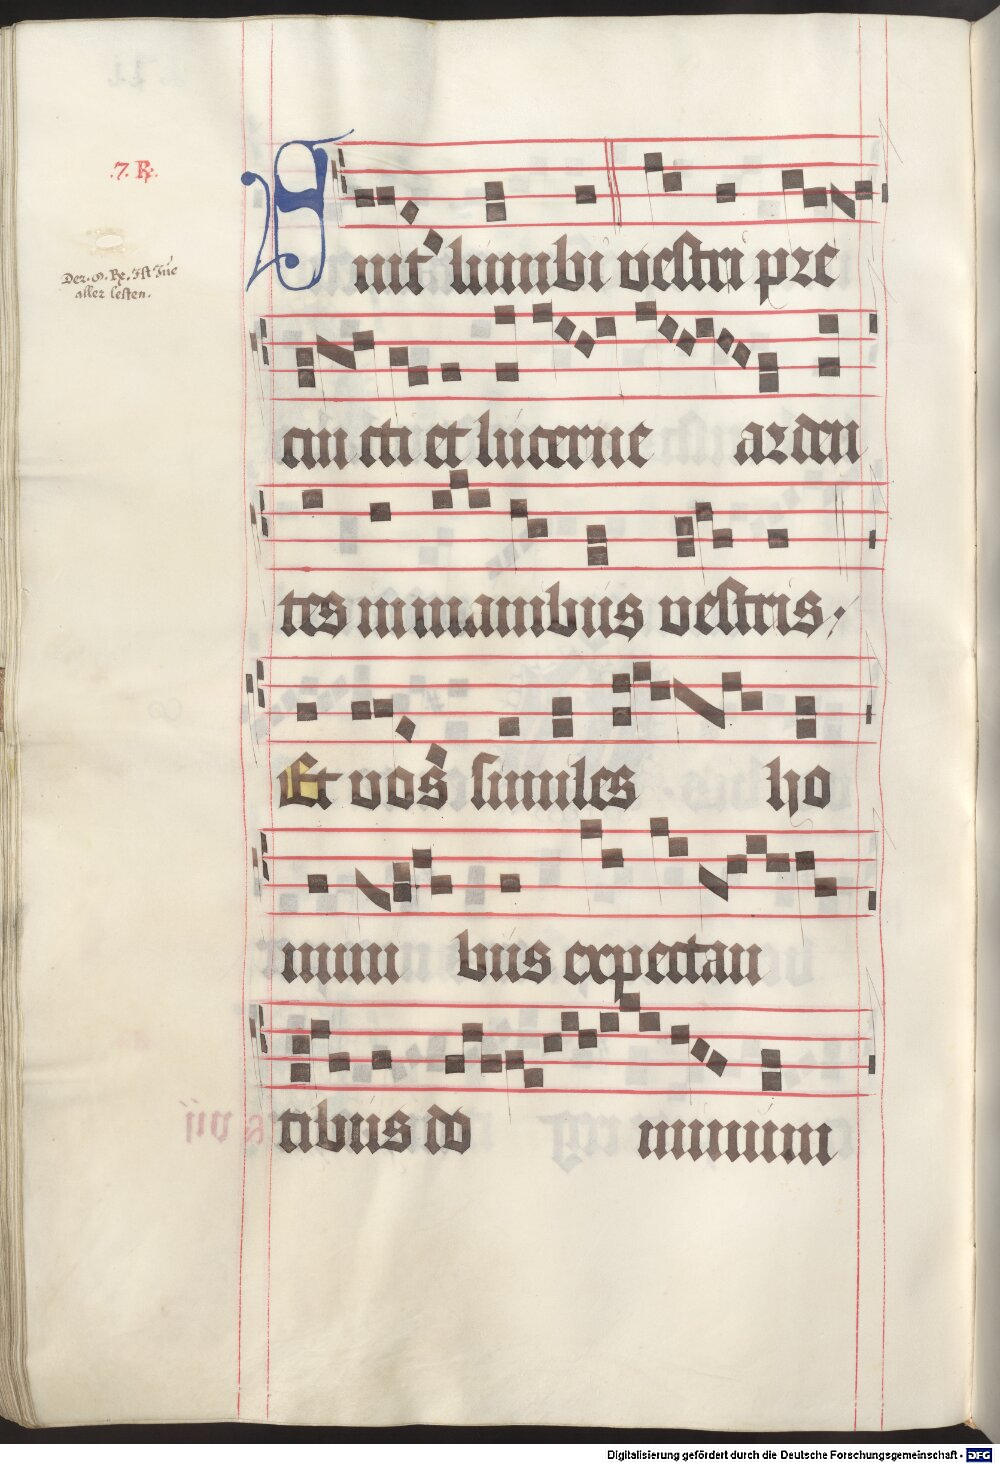 .7. R.
Der .9. Re. Ist Jnē
aller lesten.
Sint lumbi vestri pre
cincti et lucerne arden
tes in manibus vestris.
Et vos similes ho
mini bus expectan
tibus do minum
Digitalisierung gefördert durch die Deutsche Forschungsgemeinschaft - DFG